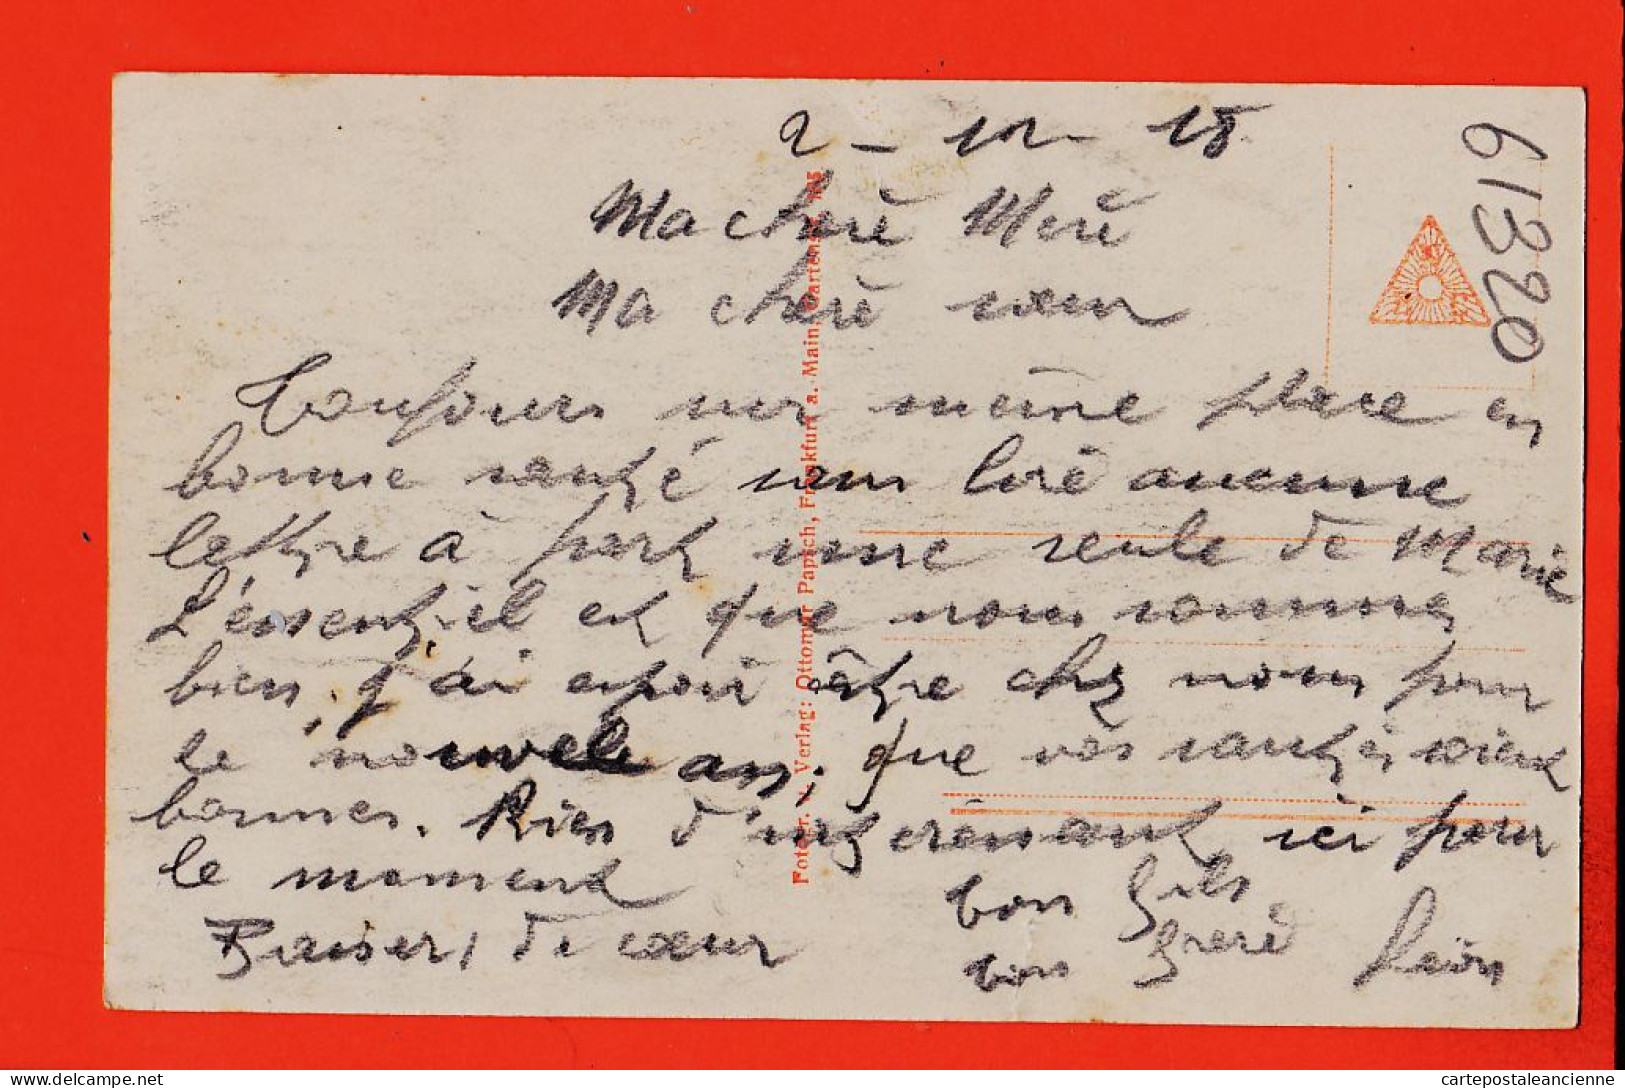 2 - 12 - 18
Ma cherè Merè
Ma cherè sœur
Toujours sur même place en
bonne santé sans lirè aucunne
lettre à part une seule de Marie
L'éssentiel est que nous sommes
bien, j'ai espoir être chez nous pour
le nouvele an, que vos santés soient
bonnes. Rien d'intéréssant ici pour
le moment
bon fils
Baisers de cœur
bon frerè Léon
61320
Fotogr. u. Verlag: Ottomar Papsch, Frankfurt a. Main, Gartenstr.
cartepostaleancienne
delcampe.net
www.cartepostaleancienne.com